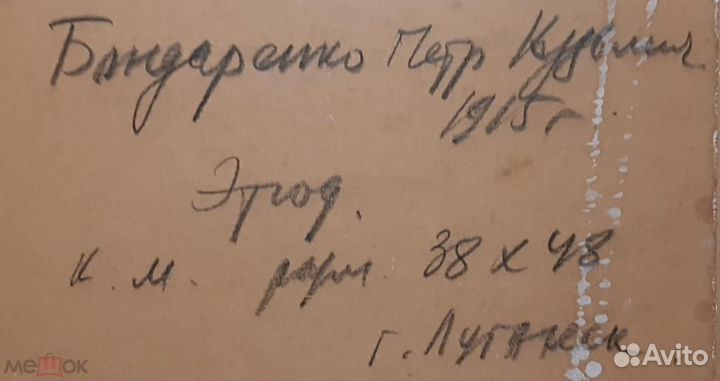 Бондаренко Петр Кузьмич
1915г
Этюд.
к. м. разм. 38 х 48
г. Луганск
мешок
Avito